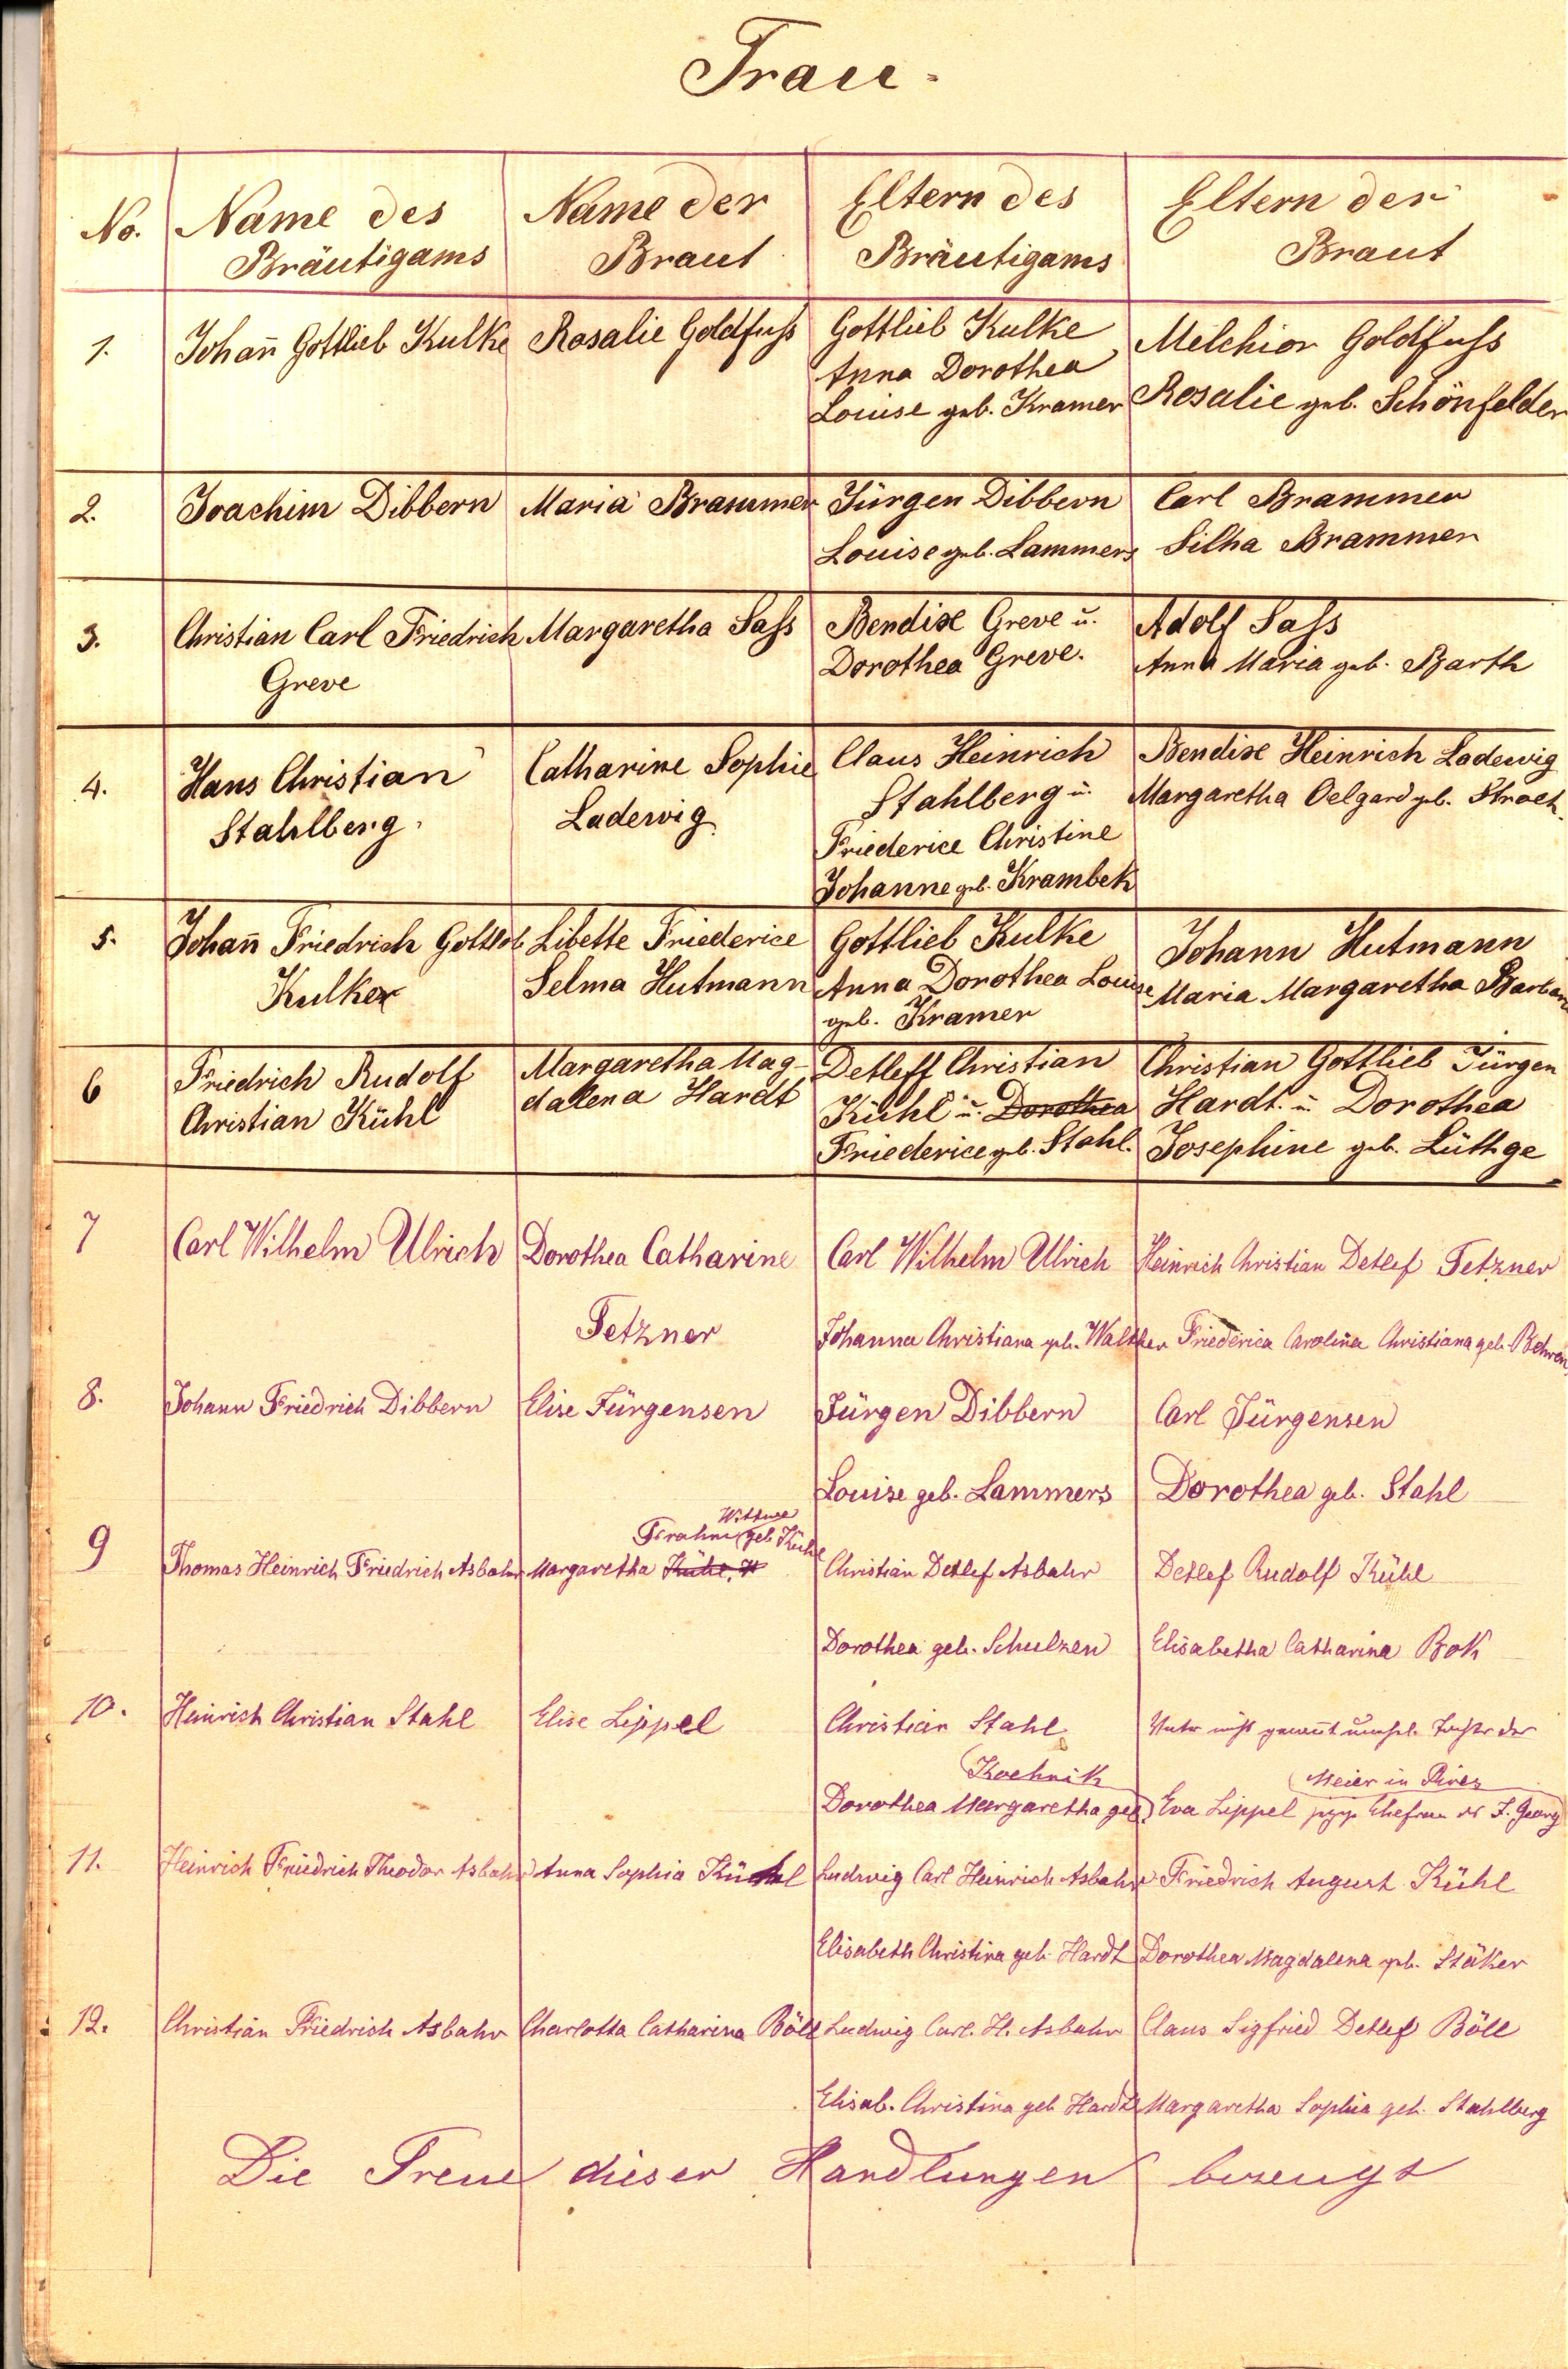 Trau-
No.
Name des
Bräutigams
Name der
Braut
Eltern des
Bräutigams
Eltern der
Braut
1.
Johañ Gottlieb Kulke
Rosalie Goldfuss
Gottlieb Kulke
Anna Dorothea
Louise geb. Kramer
Melchior Goldfuss
Rosalie geb. Schönfelder
2.
Joachim Dibbern
Maria Brammer
Jürgen Dibbern
Louise geb. Lammers
Carl Brammer
Silha Brammer
3.
Christian Carl Friedrich
Greve
Margaretha Sass
Bendixe Greve u.
Dorothea Greve.
Adolf Sass
Anna Maria geb. Barth
4.
Hans Christian
Stahlberg
Catharine Sophie
Ladewig
Claus Heinrich
Stahlberg u.
Friederice Christine
Johanne geb. Krambek
Bendixe Heinrich Ladewig
Margaretha Oelgard geb. Stroeh.
5.
Johañ Friedrich Gottlob
Kulke
Libette Friederice
Selma Hutmann
Gottlieb Kulke
Anna Dorothea Louise
geb. Kramer
Johann Hutmann
Maria Margaretha Barbara
6
Friedrich Rudolf
Christian Kühl
Margaretha Mag-
dalena Hardt
Detleff Christian
Kühl u. Dorothea
Friederice geb. Stahl.
Christian Gottlieb Jürgen
Hardt. u Dorothea
Josephine geb. Lüthge
7
Carl Wilhelm Ulrich
Dorothea Catharine
Fetzner
Carl Wilhelm Ulrich
Johanna Christiana geb. Walther
Heinrich Christian Detlef Fetzner
Friederica Carolina Christiana geb. Behren
8.
Johann Friedrich Dibbern
Elise Jürgensen
Jürgen Dibbern
Louise geb. Lammers
Carl Jürgensen
Dorothea geb. Stahl
9
Thomas Heinrich Friedrich Asbahr
Wittwe
Frahm geb Kühl
Margaretha Kühl, W
Christian Detlef Asbahr
Dorothea geb. Schulzen
Detlef Rudolf Kühl
Elisabetha Catharina Bok
10.
Heinrich Christian Stahl
Elise Lippel
Christian Stahl
Kochnik
Dorothea Margaretha geb
Vater nicht genañt unehel. Tochter der
Meier in Pires
Eva Lippel Ehefrau J. Georg
11.
Heinrich Friedrich Theodor Asbahr
Anna Sophia Kühl
Ludwig Carl Heinrich Asbahr
Elisabeth Christina geb. Hardt
Friedrich August Kühl
Dorothea Magdalena geb. Stäker
12.
Christian Friedrich Asbahr
Charlotta Catharina Böll
Ludwig Carl. H. Asbahr
Elisab. Christina geb Hardt
Claus Sigfried Detlef Böll
Margaretha Sophia geb. Stahlberg
Die Treue dieser Handlungen bezeugt